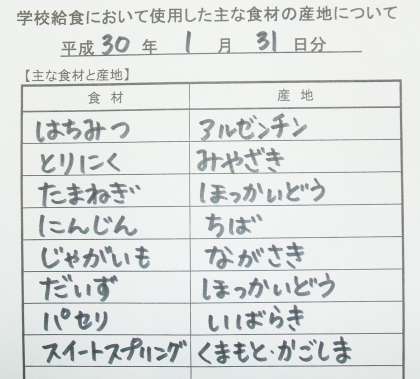 学校給食において使用した主な食材の産地について
平成 30 年 1 月 31 日分
【主な食材と産地】
食材 産地
はちみつ アルゼンチン
とりにく みやざき
たまねぎ ほっかいどう
にんじん ちば
じゃがいも ながさき
だいず ほっかいどう
パセリ いばらき
スイートスプリング くまもと・かごしま